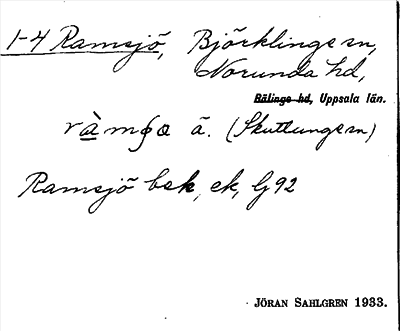 1-4 Ramsjö, Björklinge sn,
Norunda hd,
Bälinge hd, Uppsala län.
ràmʃø ä. (Skuttunge sn)
Ramsjö bsk, ek, Gj 92
JÖRAN SAHLGREN 1933.